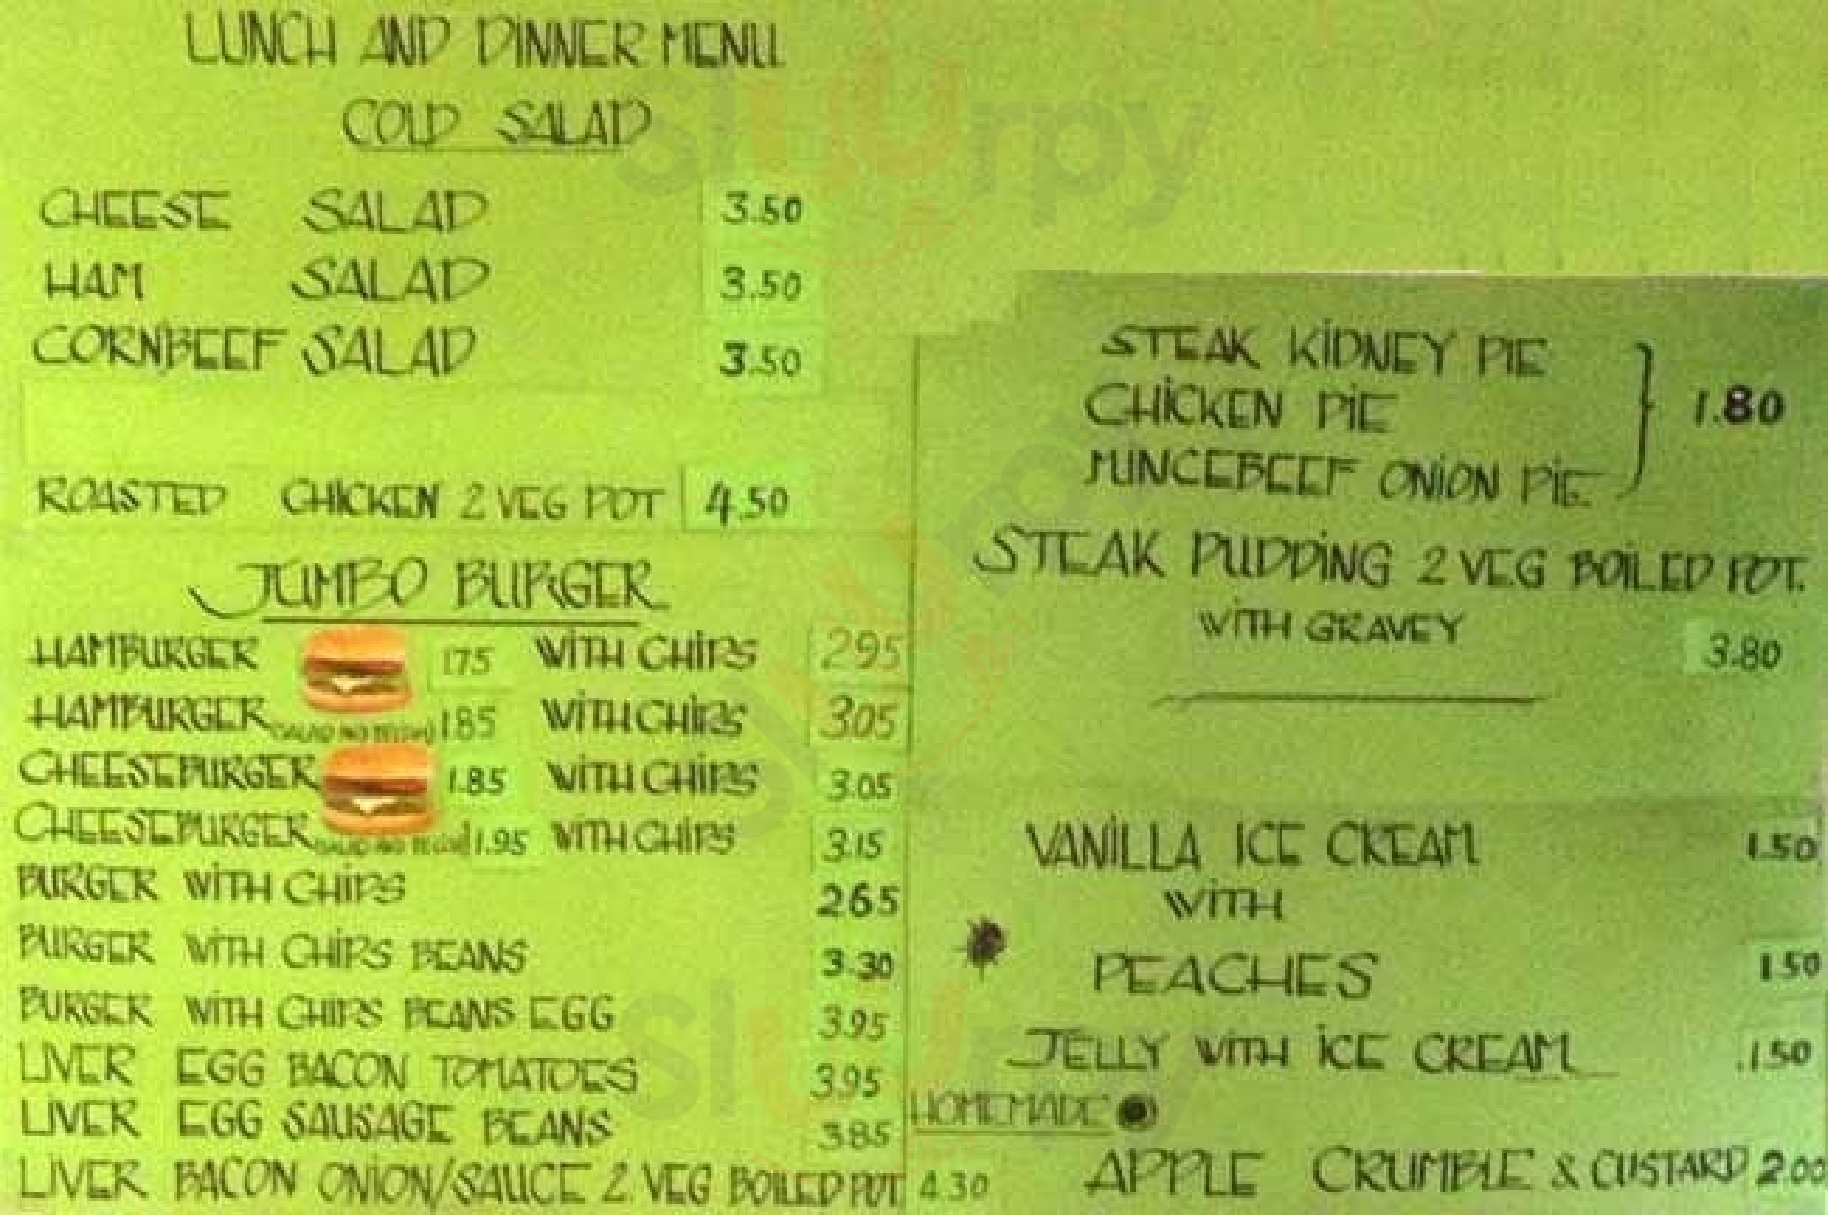 LUNCH AND DINNER MENU
COLD SALAD
CHEESE SALAD 3.50
HAM SALAD 3.50
CORNBEEF SALAD 3.50
ROASTED CHICKEN 2 VEG POT 4.50
JUMBO BURGER
HAMBURGER 175 WITH CHIPS 295
HAMBURGER (SALAD NO RELISH) 1.85 WITH CHIPS 305
CHEESEBURGER 1.85 WITH CHIPS 3.05
CHEESEBURGER (SALAD NO RELISH) 1.95 WITH CHIPS 3.15
BURGER WITH CHIPS 265
BURGER WITH CHIPS BEANS 3.30
BURGER WITH CHIPS BEANS EGG 3.95
LIVER EGG BACON TOMATOES 3.95
LIVER EGG SAUSAGE BEANS 3.85
LIVER BACON ONION/SAUCE 2 VEG BOILED POT 4.30
STEAK KIDNEY PIE
CHICKEN PIE 1.80
MINCEBEEF ONION PIE
STEAK PUDDING 2 VEG BOILED POT.
WITH GRAVEY 3.80
VANILLA ICE CREAM 1.50
WITH
PEACHES 1.50
JELLY WITH ICE CREAM 1.50
HOMEMADE
APPLE CRUMBLE & CUSTARD 2.00
slurpy
slurpy
slurpy